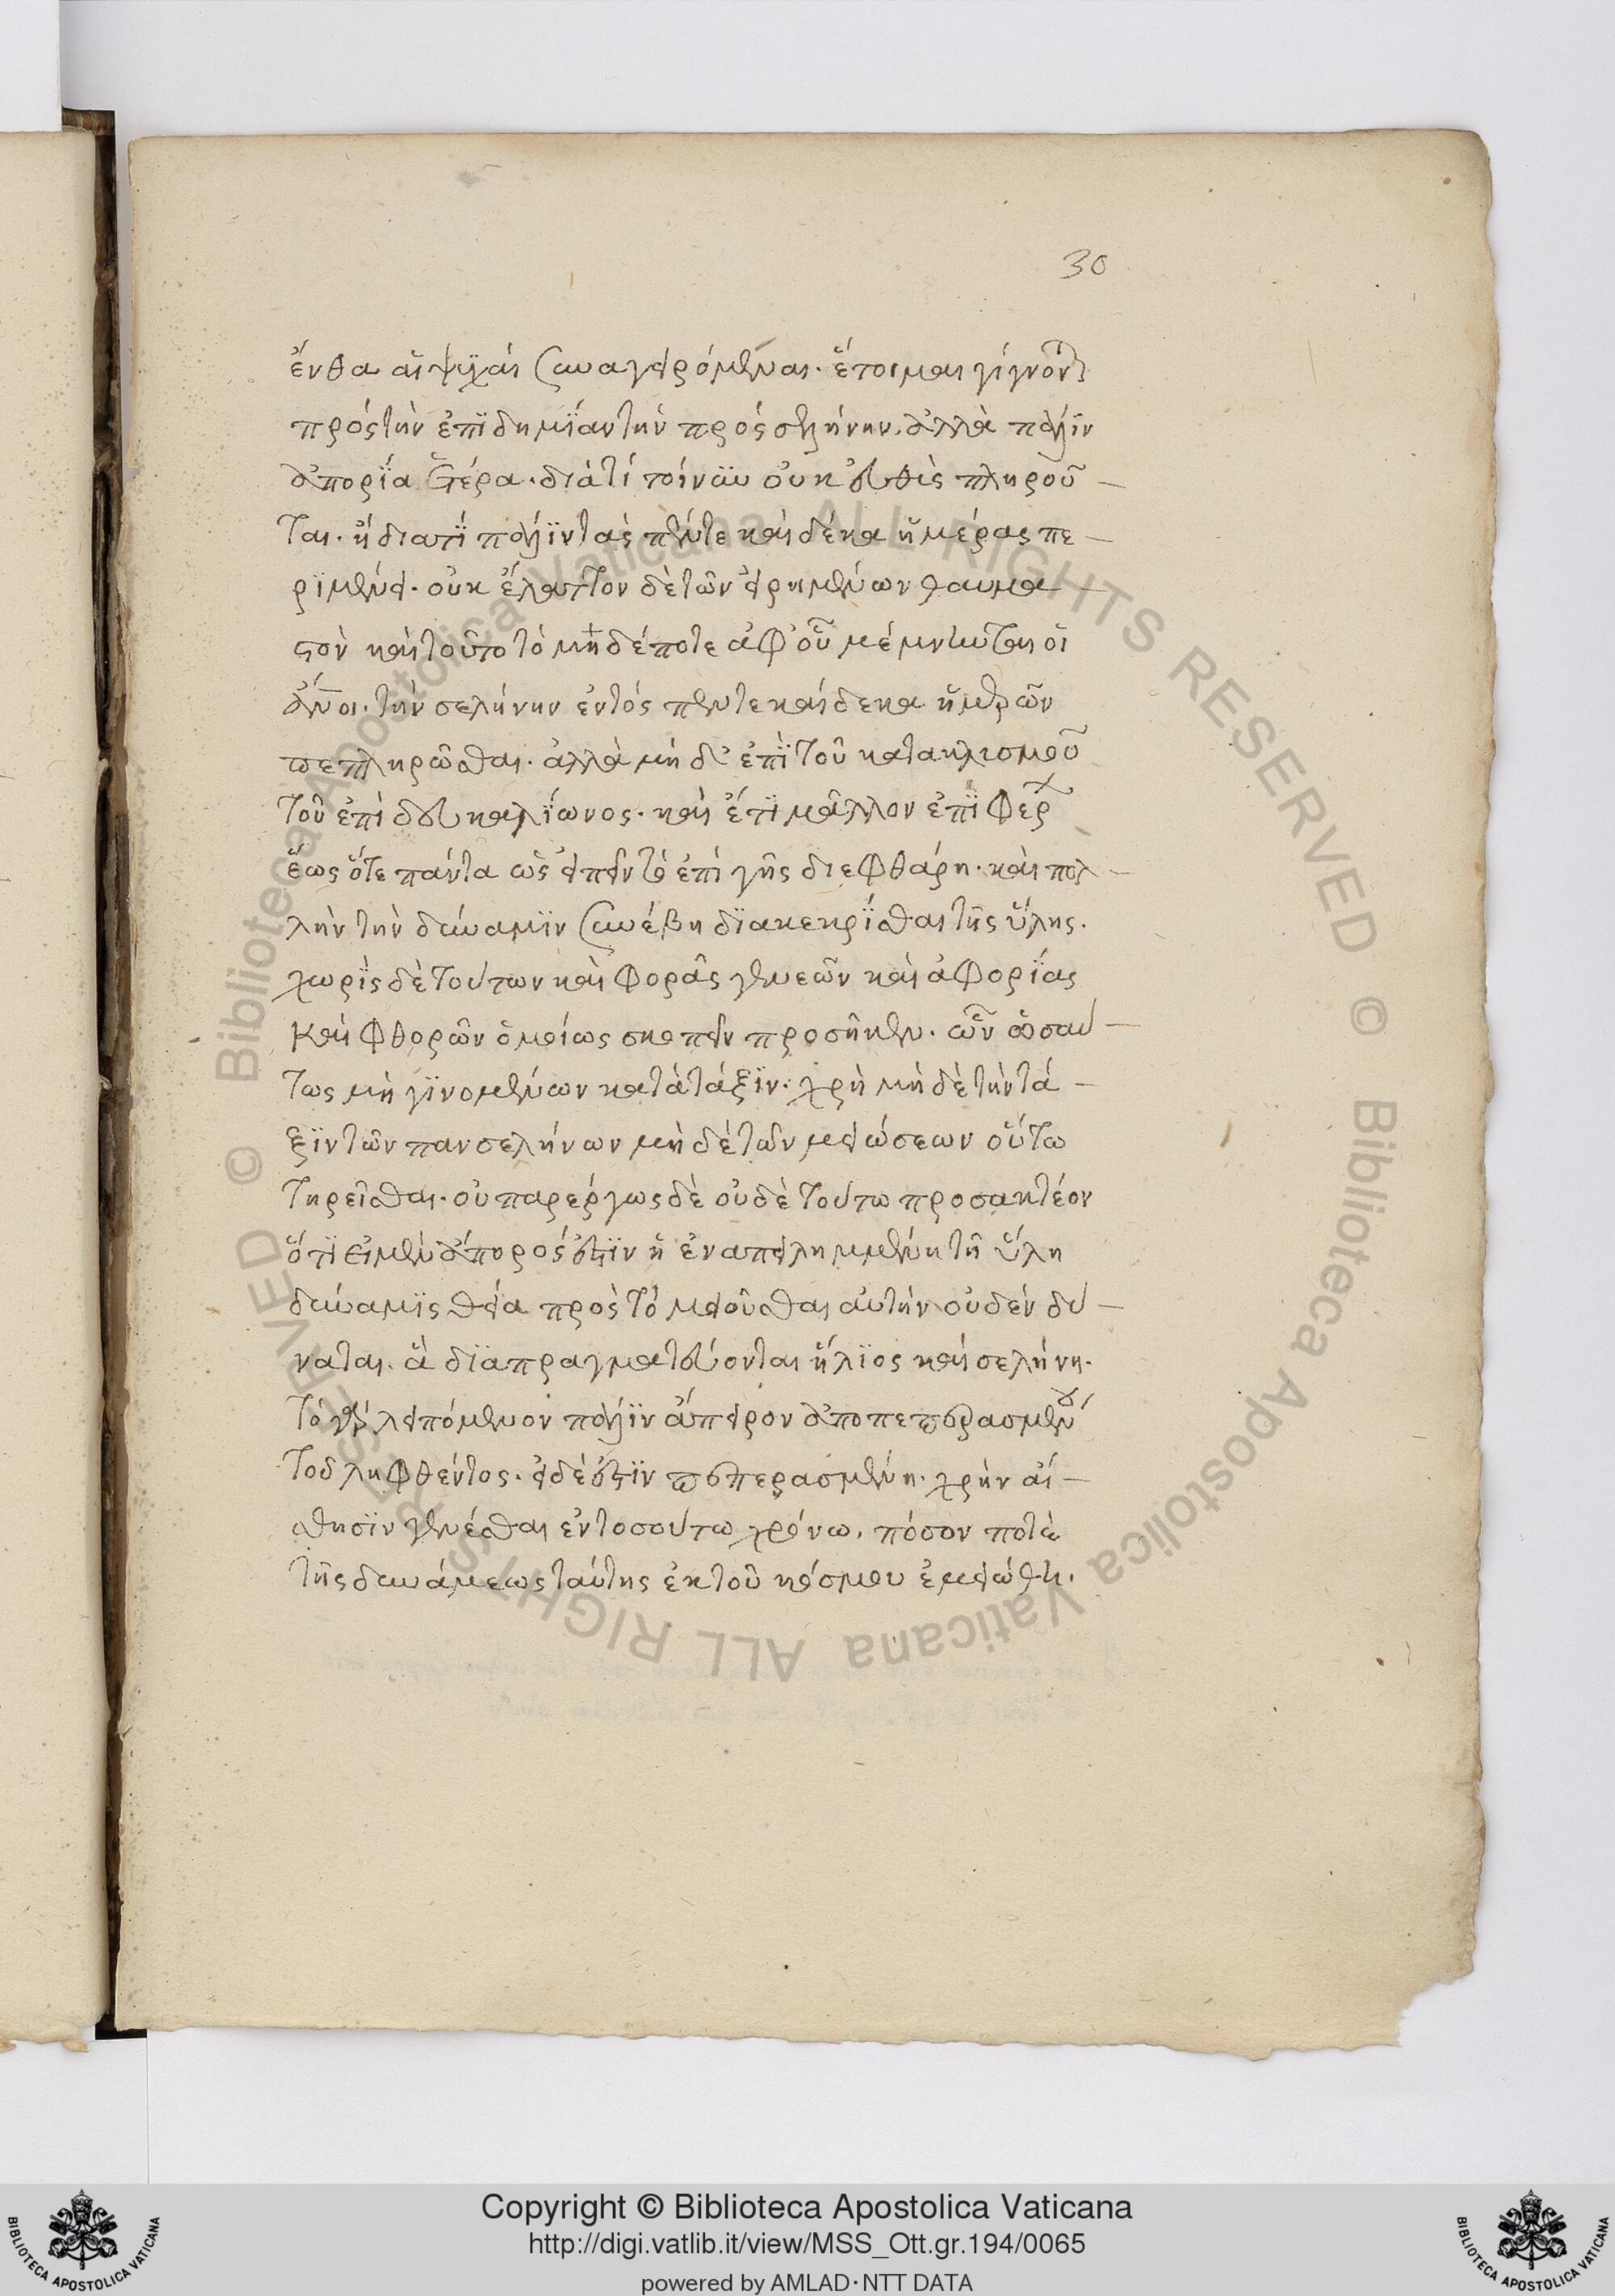 30
ἔνθα αἱ ψυχαὶ συναγειρόμεναι. ἕτοιμαι γίγνονται
πρὸς τὴν ἐπϊδημΐαν τὴν πρὸς σελήνην. ἀλλὰ πάλιν
ἀπορΐα ἑτέρα. διὰ τί τοίνϋν οὐκ εὐθὺς πληροῦ
ται. ἢ διατΐ πάλϊν τὰς πέντε καὶ δέκα ἡμέρας πε
ρϊμένει. οὐκ ἔλαττον δὲ τῶν εἰρημένων θαυμα
στὸν καὶ τοῦτο τὸ μηδέποτε ἀφ' οὗ μέμνηνται οἱ
ἄνοι. τὴν σελήνην ἐντὸς πέντε καίδεκα ἡμερῶν
πεπληρῶσθαι. ἀλλὰ μὴ δ' ἐπῒ τοῦ κατακλισμοῦ
τοῦ ἐπὶ δευκαλΐωνος. καὶ ἔτϊ μᾶλλον ἐπῒ Φερ
ἕως ὅτε πάντα ὡς εἰπεῖν τὰ ἐπὶ γῆς διεφθάρη. καὶ πολ
λὴν τὴν δύναμϊν συνέβη δϊακεκρΐσθαι τῆς ὕλης.
χωρῒς δὲ τούτων καὶ φορᾶς γενεῶν καὶ ἀφορΐας
καὶ φθορῶν ὁμοίως σκοπεῖν προσῆκεν. ὧν ὡσαύ
τως μὴ γϊνομένων κατὰ τάξϊν. χρὴ μὴ δὲ τὴν τά
ξϊν τῶν πανσελήνων μὴ δὲ τῶν μειώσεων οὕτω
τηρεῖσθαι. οὐ παρέργως δὲ οὐδὲ τούτω προσακτέον
ὅτϊ εἰ μὲν ἄπορός ἐστϊν ἡ ἐναπειλημμένη τῆ ὕλη
δύναμϊς θεία πρὸς τὸ μειοῦσθαι αὐτὴν οὐδὲν δύ
ναται. ἃ δϊαπραγματεύονται ἥλϊος καὶ σελήνη.
τὸ γὰρ λειπόμενον πάλϊν ἄπειρον ἀποπεπερασμένου
τοῦ ληφθέντος. εἰ δέ ἐστϊν πεπερασμένη. χρὴν αἴ
σθησϊν γενέσθαι ἐν τοσούτω χρόνω. πόσον ποτὲ
τῆς δυνάμεως ταύτης ἐκ τοῦ κόσμου ἐμειώθη.
Copyright © Biblioteca Apostolica Vaticana
http://digi.vatlib.it/view/MSS_Ott.gr.194/0065
powered by AMLAD·NTT DATA